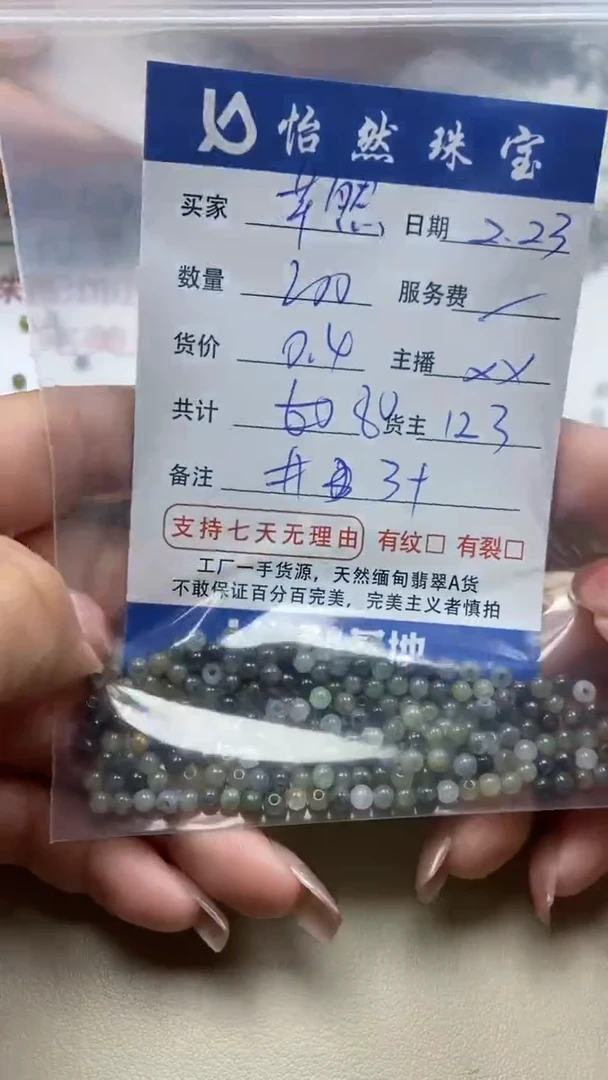 怡然珠宝
买家 日期 2.23
数量 200 服务费 /
货价 0.4 主播 xx
共计 80 货主 123
备注 3+
支持七天无理由 有纹□ 有裂□
工厂一手货源，天然缅甸翡翠A货
不敢保证百分百完美，完美主义者慎拍